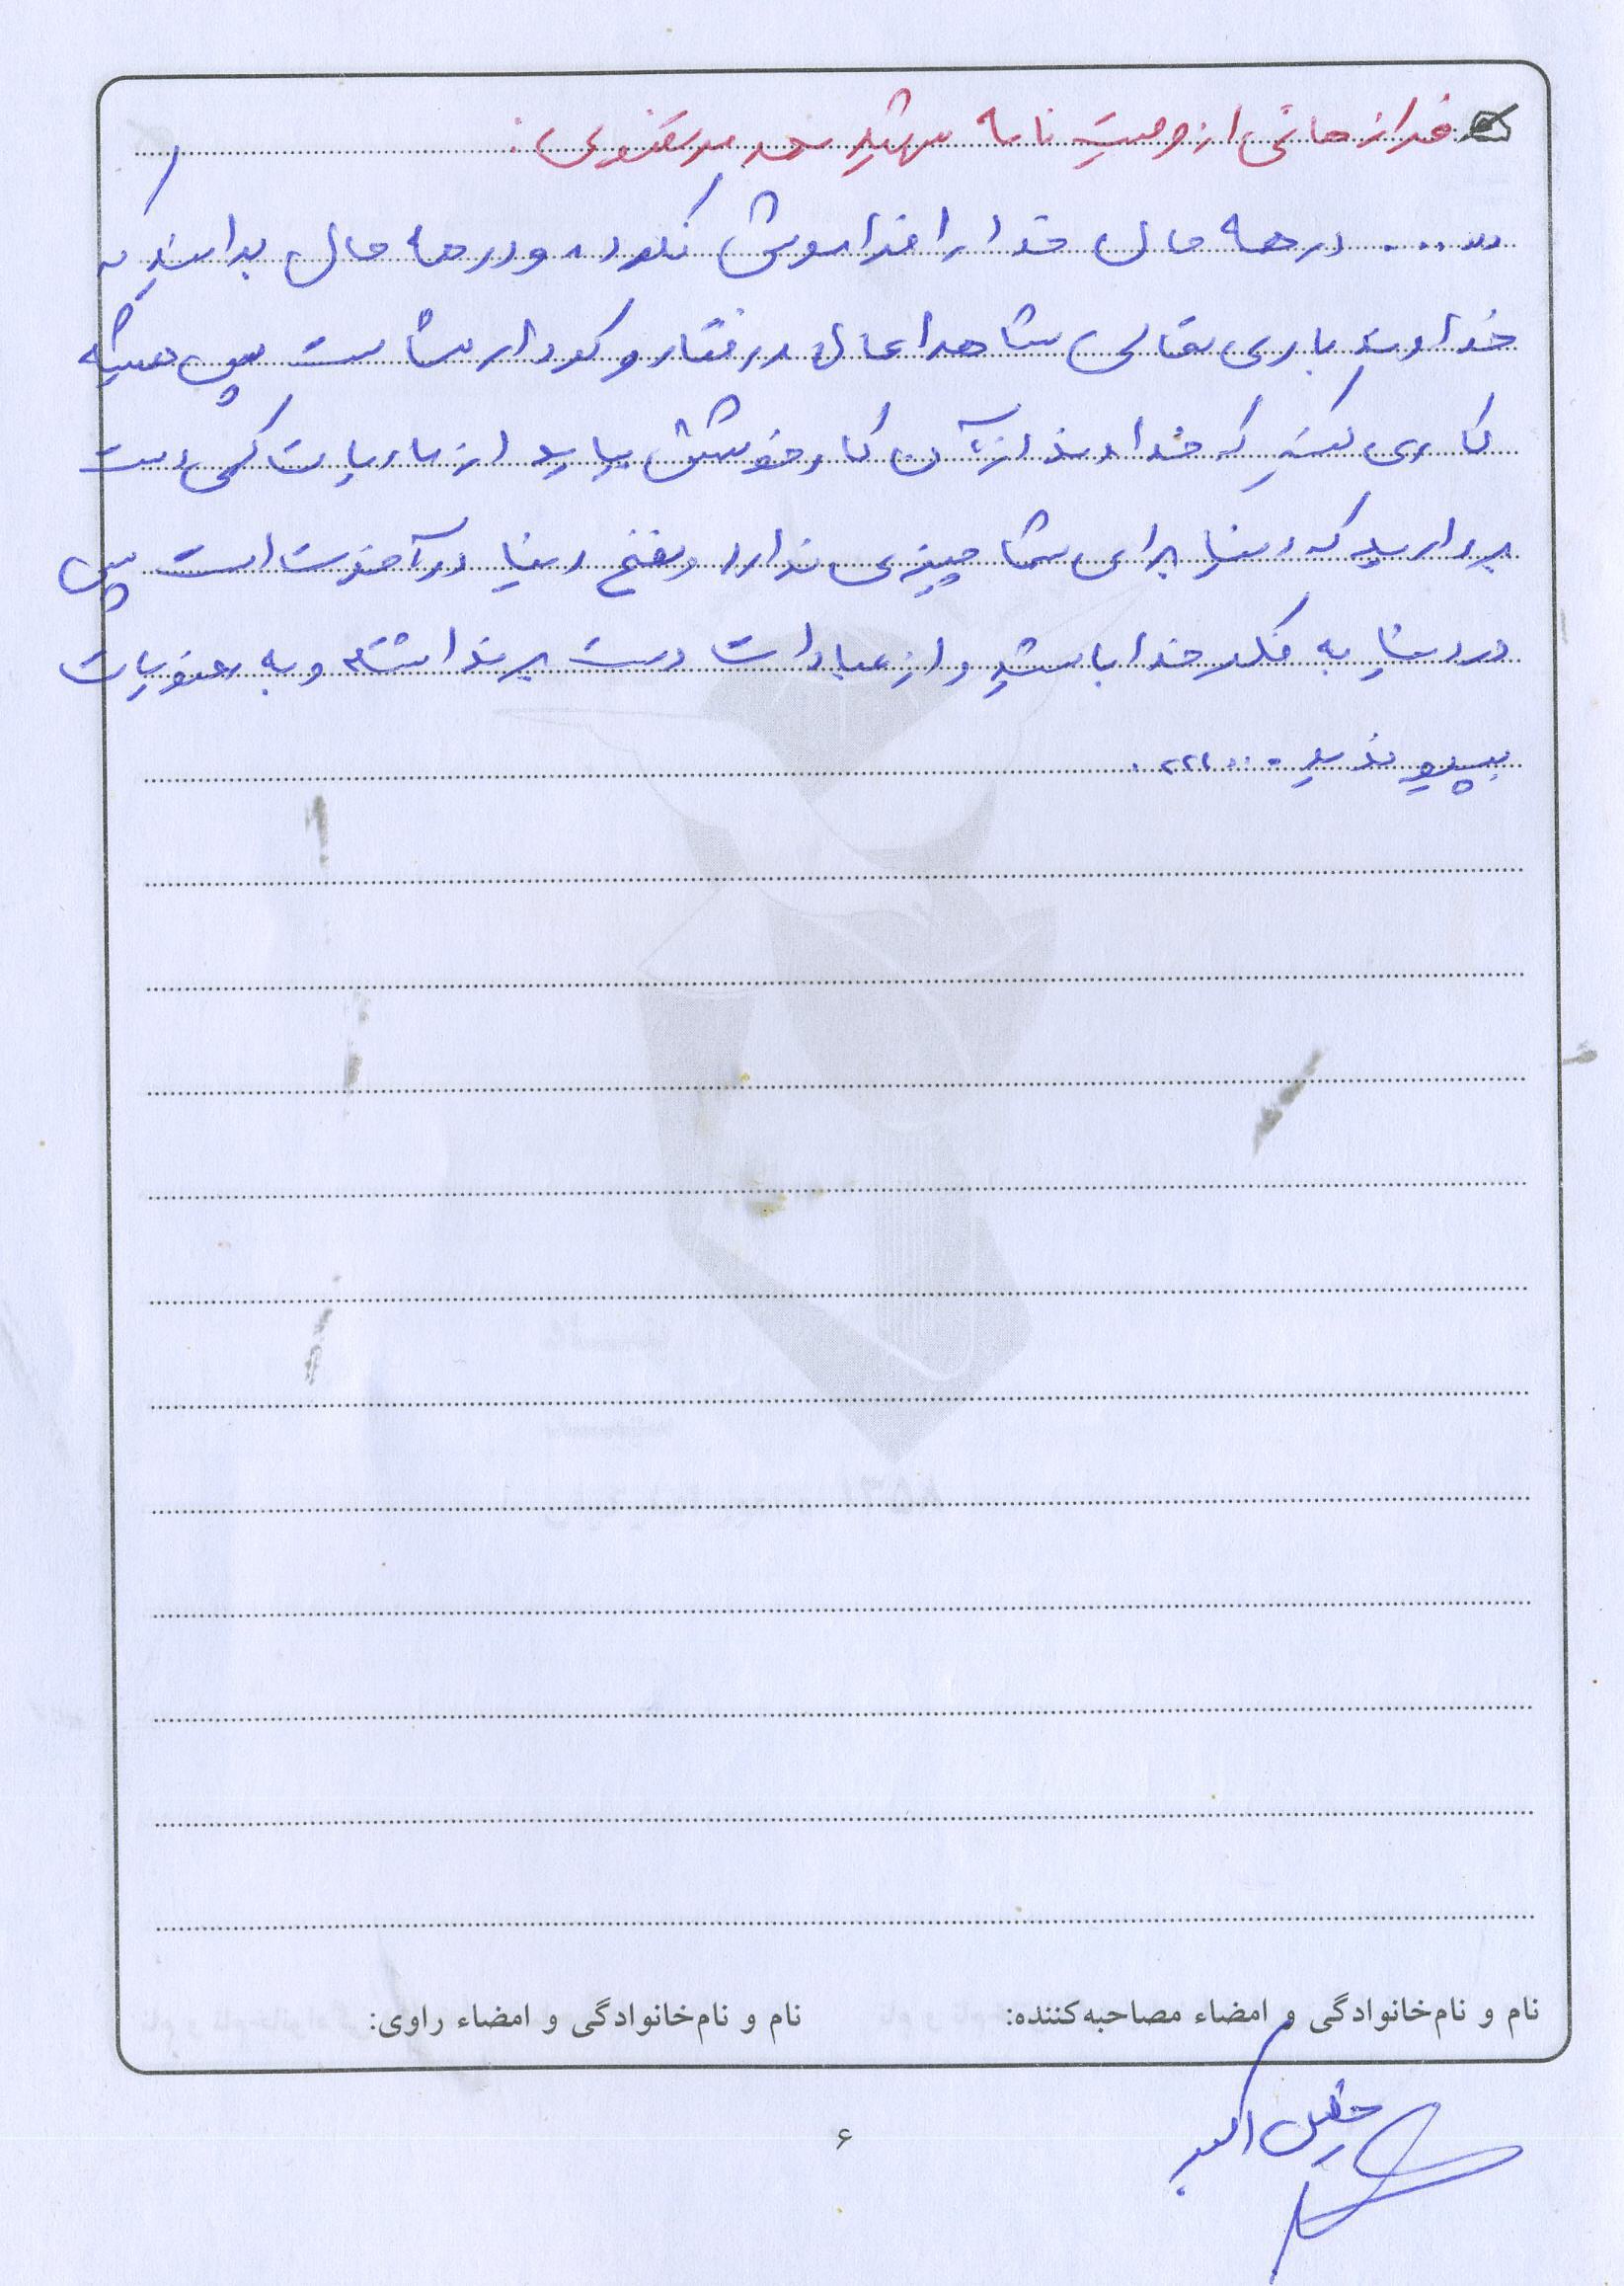 فرازهائی از وصیت نامه شهید محمد میرتقوی:
«.... در همه حال خدا را فراموش نکرده و در همه حال بدانید که
خداوند باری تعالی شاهد اعمال در رفتار و کردار شماست پس همیشه
کاری کنید که خداوند از آن کار خوشش بیاید از مادیات کمی دست
بردارید که دنیا برای شما چیزی ندارد و نفع دنیا در آخرت است پس
در دنیا به فکر خدا باشید و از عبادات دست برنداشته و به معنویات
بپیوندید....»
نام و نام‌خانوادگی و امضاء مصاحبه‌کننده:
نام و نام‌خانوادگی و امضاء راوی:
اکبر
۶